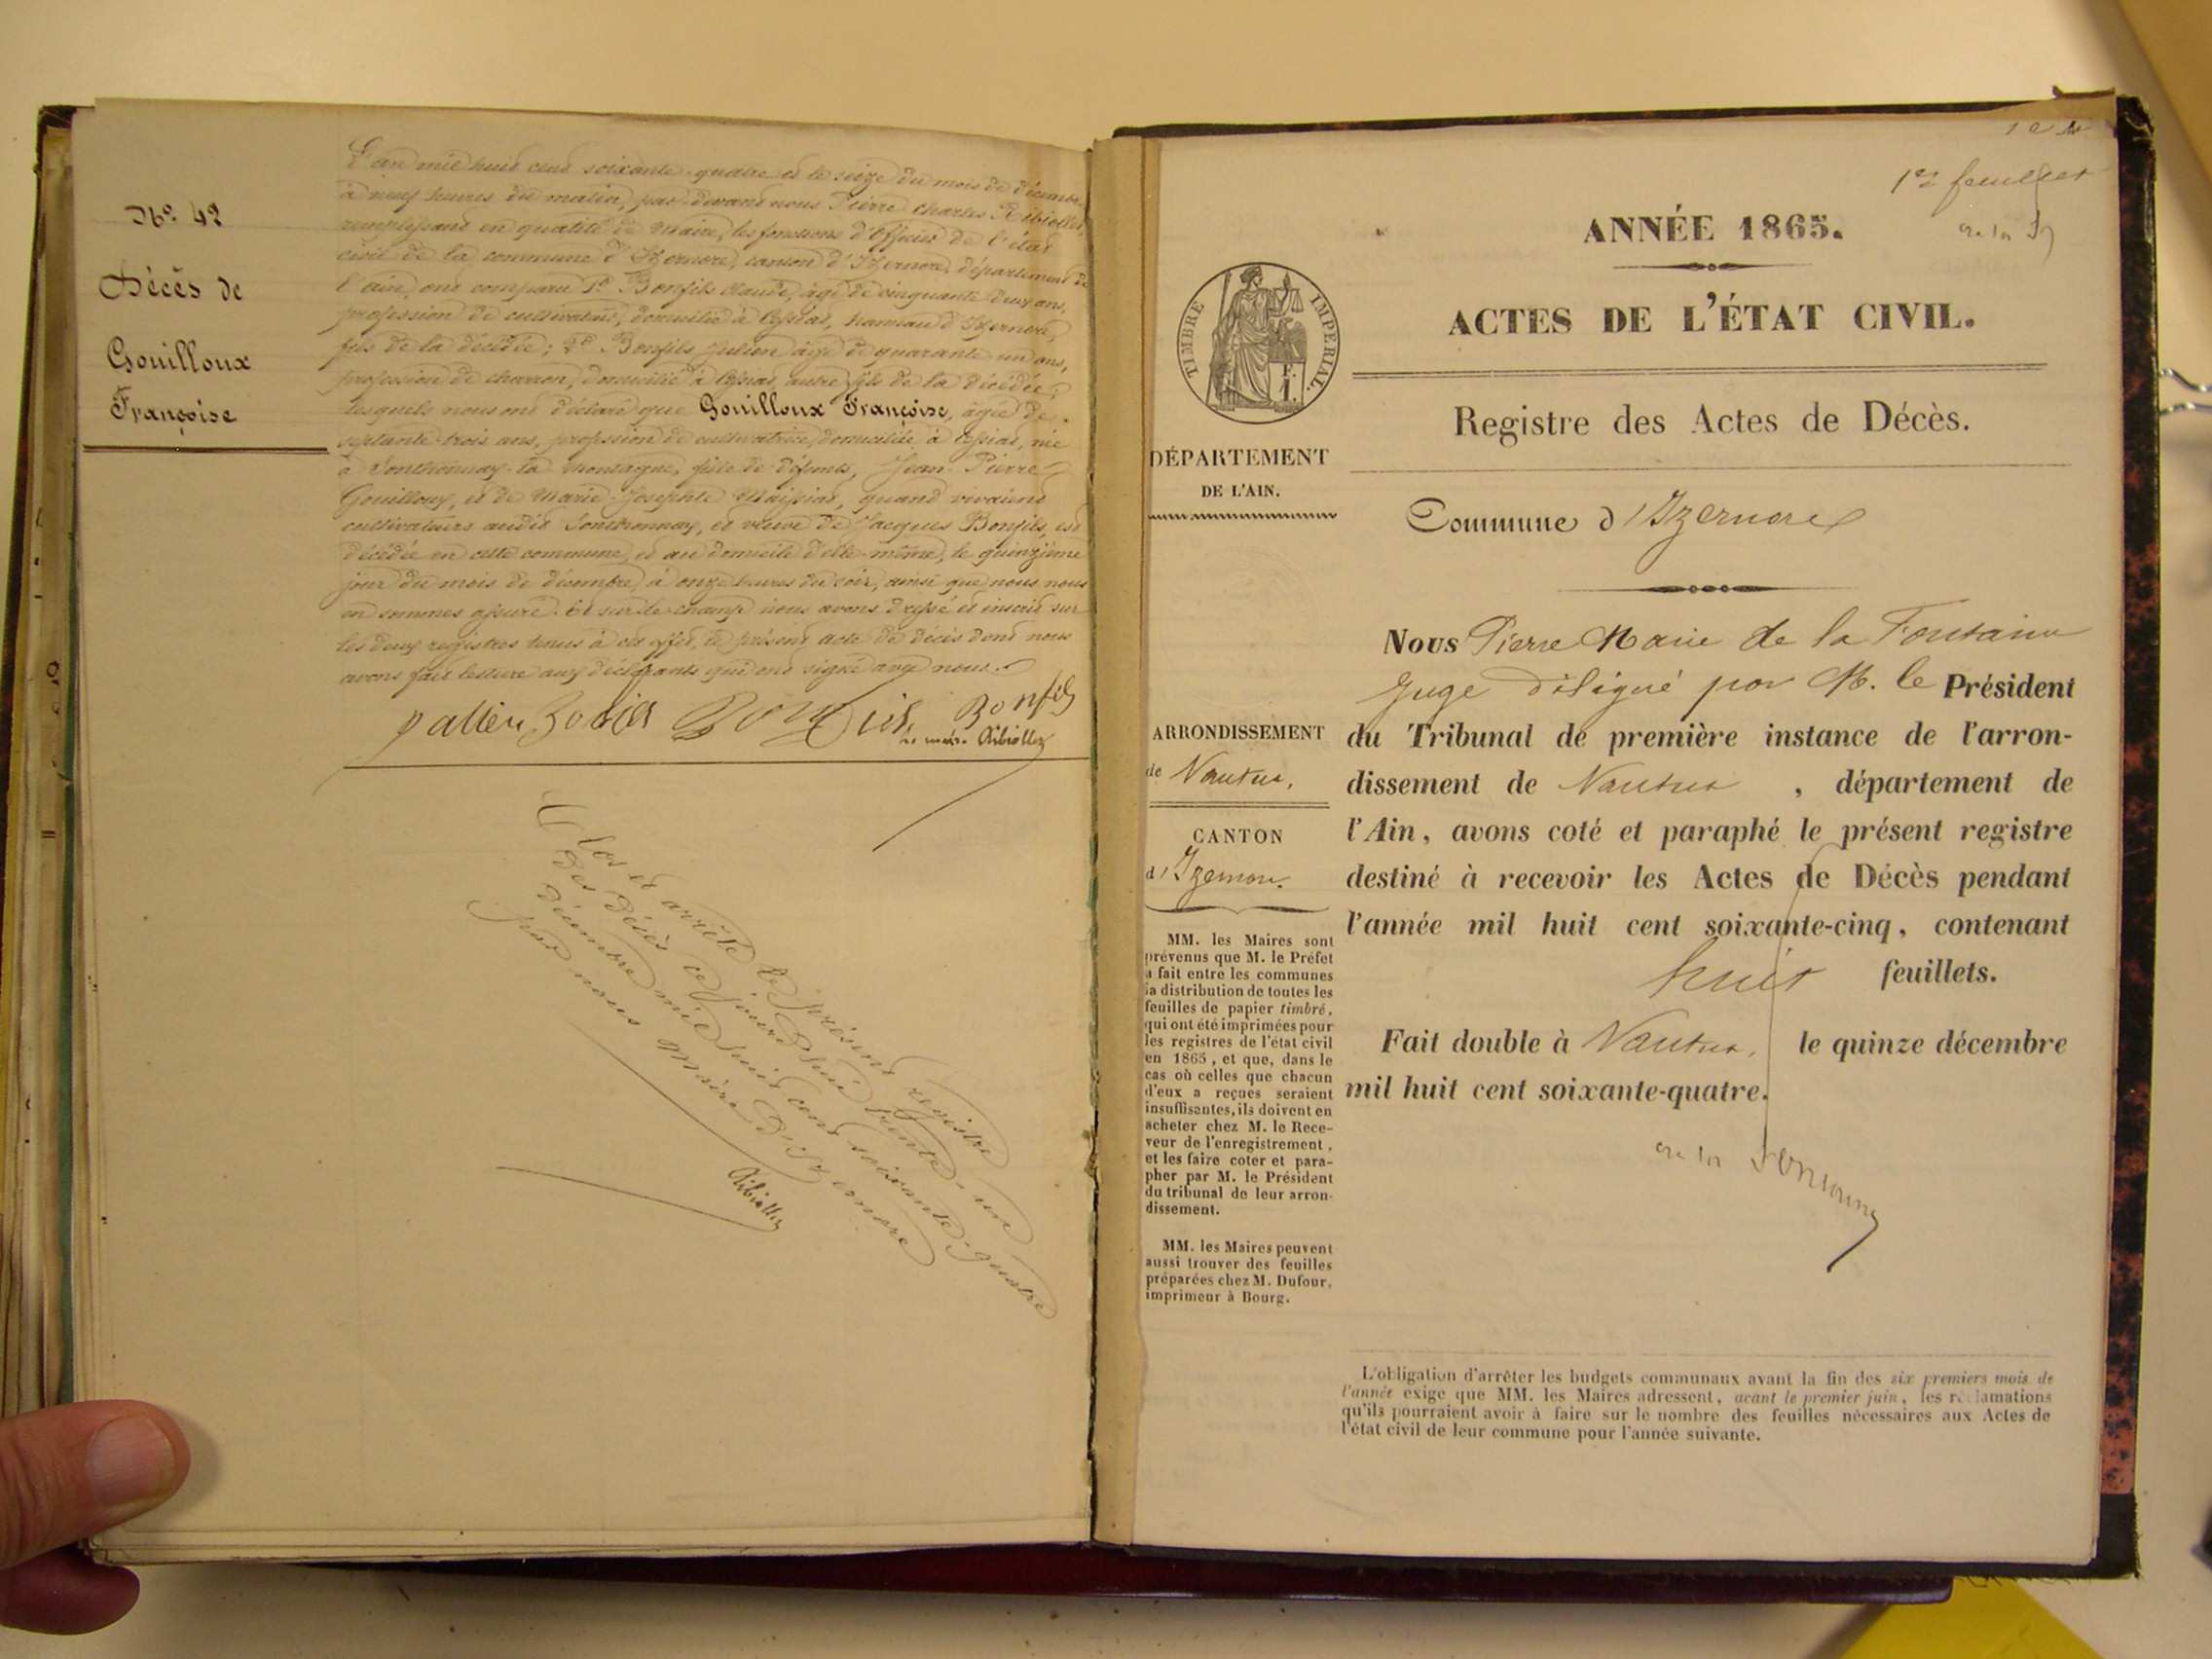 No. 42
Décès de
Gouilloux
Françoise
L'an mil huit cent soixante-quatre et le seize du mois de décembre
à neuf heures du matin, par-devant nous Pierre Charles Ribiollet,
remplissant en qualité de Maire, les fonctions d'officier de l'état
civil de la commune d'Izernore, canton d'Izernore, département de
l'ain, ont comparu 1o Bonfils Claude, âgé de cinquante deux ans,
profession de cultivateur, domicilié à Cessiat, hameau d'Izernore,
fils de la décédée; 2o Bonfils Julien âgé de quarante un ans,
profession de charron, domicilié à Cessiat, autre fils de la décédée;
lesquels nous ont déclaré que Gouilloux Françoise, âgée de
septante-trois ans, profession de cultivatrice, domiciliée à Cessiat, née
à Sonthonnax-la Montagne, fille de défunts, Jean-Pierre
Gouilloux, et de Marie-Josephte Maissiat, quand vivaient
cultivateurs audit Sonthonnax, et veuve de Jacques Bonfils, est
décédée en cette commune, et au domicile d'elle-même, le quinzième
jour du mois de décembre, à onze heures du soir, ainsi que nous nous
en sommes assuré. Et sur-le-champ nous avons dressé et inscrit sur
les deux registres tenus à cet effet, le présent acte de décès dont nous
avons fait lecture aux déclarants qui ont signé avec nous.
Bonfils
Le maire Ribiollet
Clos et arrêté le présent registre
des décès ce jourd'hui trente-un
décembre mil huit cent soixante-quatre
par nous Maire d'Izernore
Ribiollet
1er feuillet
ANNÉE 1865.
ACTES DE L'ÉTAT CIVIL.
Registre des Actes de Décès.
TIMBRE IMPERIAL.
1 F.
DÉPARTEMENT
DE L'AIN.
Commune d'Izernore
Nous Pierre Marie de la Fontaine
Juge délégué par M. le Président
du Tribunal de première instance de l'arron-
dissement de Nantua, département de
l'Ain, avons coté et paraphé le présent registre
destiné à recevoir les Actes de Décès pendant
l'année mil huit cent soixante-cinq, contenant
huit feuillets.
Fait double à Nantua, le quinze décembre
mil huit cent soixante-quatre.
ARRONDISSEMENT
de Nantua.
CANTON
d'Izernore.
MM. les Maires sont
prévenus que M. le Préfet
a fait entre les communes
la distribution de toutes les
feuilles de papier timbré,
qui ont été imprimées pour
les registres de l'état civil
en 1865, et que, dans le
cas où celles que chacun
d'eux a reçues seraient
insuffisantes, ils doivent en
acheter chez M. le Rece-
veur de l'enregistrement,
et les faire coter et para-
pher par M. le Président
du tribunal de leur arron-
dissement.
MM. les Maires peuvent
aussi trouver des feuilles
préparées chez M. Dufour,
imprimeur à Bourg.
L'obligation d'arrêter les budgets communaux avant la fin des six premiers mois de
l'année exige que MM. les Maires adressent, avant le premier juin, les réclamations
qu'ils pourraient avoir à faire sur le nombre des feuilles nécessaires aux Actes de
l'état civil de leur commune pour l'année suivante.